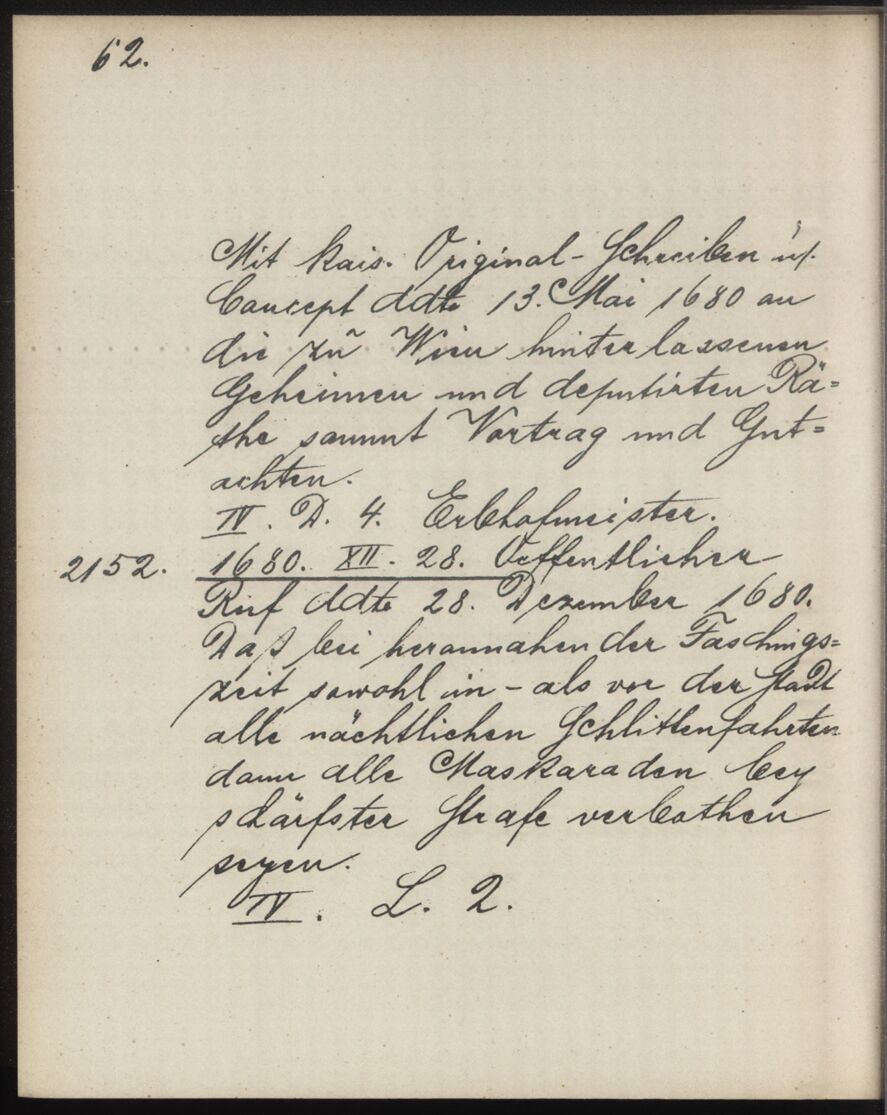 62.
Mit kais. Original-Schreiben u.
Concept ddto 13. Mai 1680 an
die zu Wien hinterlassenen
Geheimen und deputirten Rä=
the sammt Vortrag und Gut=
achten.
IV. D. 4. Erbhofmeister.
2152. 1680. XII. 28. Oeffentlicher
Ruf ddto 28. Dezember 1680.
Daß bei herannahender Faschings=
zeit sowohl in - als vor der Stadt
alle nächtlichen Schlittenfahrten
dann alle Maskaraden bey
schärfster Strafe verbothen
seyen.
IV. L. 2.